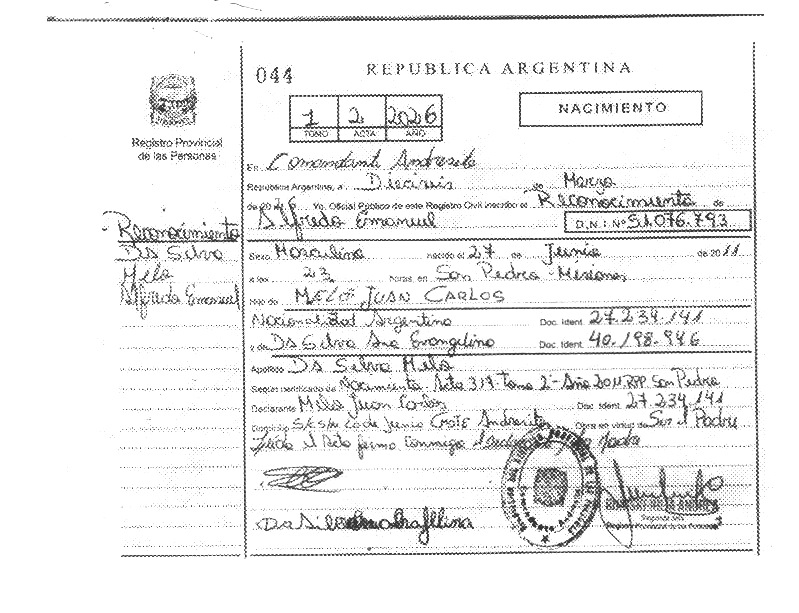 044
REPUBLICA ARGENTINA
1 2 2026
TOMO ACTA AÑO
NACIMIENTO
Registro Provincial
de las Personas
En Comandante Andresito
República Argentina, a Dieciseis de Marzo
de 2026 Yo, Oficial Público de este Registro Civil inscribo el Reconocimiento de
Alfredo Emanuel
D.N.I. Nº 51.076.793
Reconocimiento
Da Silva
Melo
Alfredo Emanuel
Sexo Masculino nacido el 27 de Junio de 2011
a las 23 horas en San Pedro - Misiones
hijo de MELO JUAN CARLOS
Nacionalidad Argentino Doc. Ident. 27.234.141
y de Da Silva Doc. Ident. 40.198.946
Apellido Da Silva Melo
Según certificado de Nacimiento Acta 319 Tomo 2º Año 2011 RPP San Pedro
Declarante Melo Juan Carlos Doc. Ident. 27.234.141
Domicilio S/C S/Nº 20 de Junio Andresito Obra en virtud de Ser el Padre
el Acta firma conmigo el Padre
Da Silva
Registro Provincial de las Personas